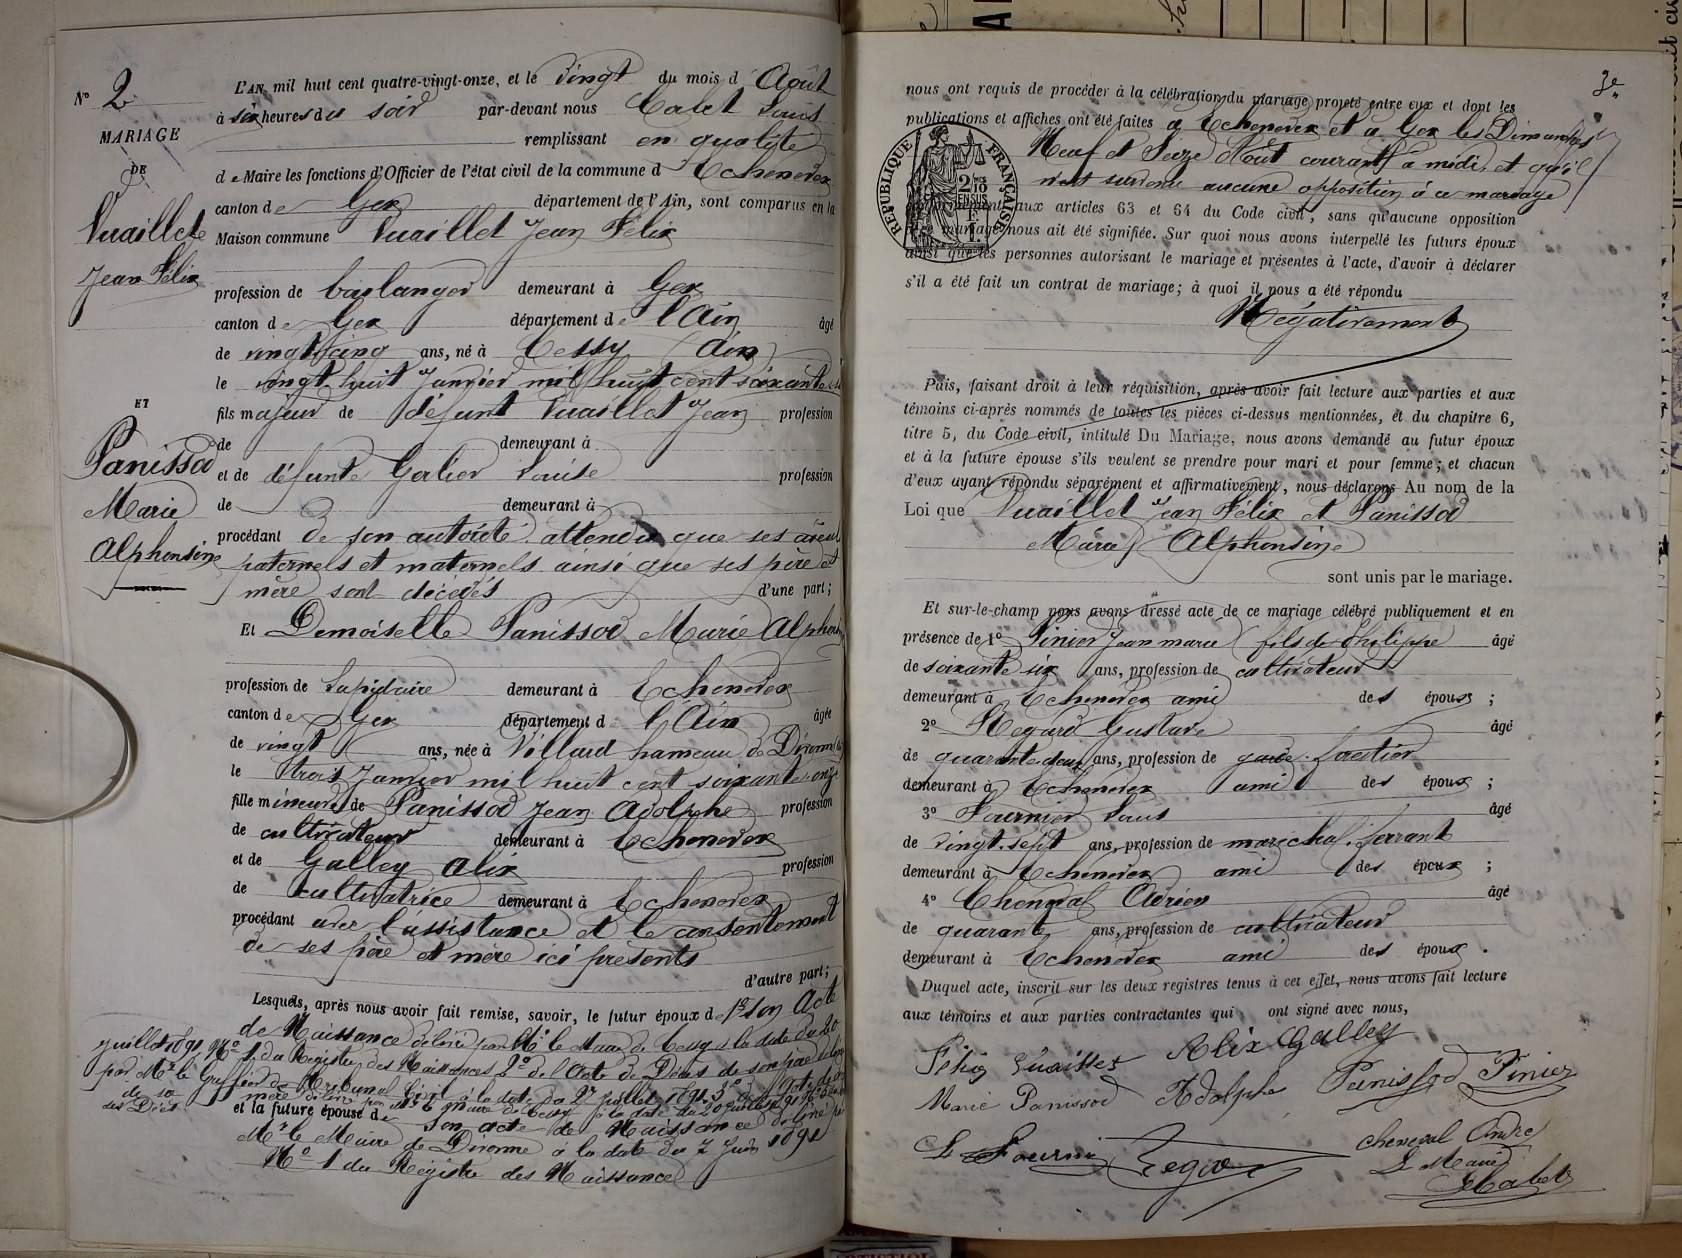 N° 2
MARIAGE
DE
Vuaillet
Jean Félix
ET
Panissod
Marie
Alphonsine
L'AN mil huit cent quatre-vingt-onze, et le vingt du mois d'Août
à six heures du soir par-devant nous Cabet Louis
remplissant en qualité
de Maire les fonctions d'Officier de l'état civil de la commune d'Echenevex
canton de Gex département de l'Ain, sont comparus en la
Maison commune Vuaillet Jean Félix
profession de boulanger demeurant à Gex
canton de Gex département de l'Ain âgé
de vingt cinq ans, né à Cessy (Ain)
le vingt-huit Janvier mil huit cent soixante six
fils majeur de défunt Vuaillet Jean profession
de demeurant à
et de défunte Gerlier Louise profession
de demeurant à
procédant de son autorité attendu que ses aïeuls
paternels et maternels ainsi que ses père et
mère sont décédés d'une part;
Et Demoiselle Panissod Marie Alphonsine
profession de Lapidaire demeurant à Echenevex
canton de Gex département de l'Ain âgée
de vingt ans, née à Villard hameau de Divonne
le trois Janvier mil huit cent soixante onze
fille mineure de Panissod Jean Adolphe profession
de cultivateur demeurant à Echenevex
et de Galley Alix profession
de cultivatrice demeurant à Echenevex
procédant avec l'assistance et le consentement
de ses père et mère ici présents
d'autre part;
Lesquels, après nous avoir fait remise, savoir, le futur époux d 1° son Acte
de Naissance délivré par Mr le Maire de Cessy à la date du 20
juillet 1891 N° 1 du Registre des Naissances 2° de l'Acte de Décès de son père délivré
par Mr le Greffier du Tribunal Civil à la date du 27 juillet 1891 3°
mère délivré par Mr le Maire de Cessy à la date du 20 juillet 1891
de sa
des Décès
et la future épouse de son acte de Naissance délivré par
Mr le Maire de Divonne à la date du 7 Juin 1891
N° 1 du Registre des Naissances
3e
nous ont requis de procéder à la célébration du mariage projeté entre eux et dont les
publications et affiches ont été faites à Echenevex et à Gex les Dimanches
Neuf et Seize Août courant à midi, et qu'il
n'est survenu aucune opposition à ce mariage
RÉPUBLIQUE FRANÇAISE
2/10 EN SUS
conformément aux articles 63 et 64 du Code civil, sans qu'aucune opposition
mariage nous ait été signifiée. Sur quoi nous avons interpellé les futurs époux
ainsi que les personnes autorisant le mariage et présentes à l'acte, d'avoir à déclarer
s'il a été fait un contrat de mariage; à quoi il nous a été répondu
Négativement
Puis, faisant droit à leur réquisition, après avoir fait lecture aux parties et aux
témoins ci-après nommés de toutes les pièces ci-dessus mentionnées, et du chapitre 6,
titre 5, du Code civil, intitulé Du Mariage, nous avons demandé au futur époux
et à la future épouse s'ils veulent se prendre pour mari et pour femme; et chacun
d'eux ayant répondu séparément et affirmativement, nous déclarons Au nom de la
Loi que Vuaillet Jean Félix et Panissod
Marie Alphonsine
sont unis par le mariage.
Et sur-le-champ nous avons dressé acte de ce mariage célébré publiquement et en
présence de 1° Pinier Jean marie fils de Philippe âgé
de soixante six ans, profession de cultivateur
demeurant à Echenevex ami des époux ;
2° Regard Gustave âgé
de quarante deux ans, profession de garde-forestier
demeurant à Echenevex ami des époux ;
3° Fournier Louis âgé
de vingt-sept ans, profession de maréchal-ferrant
demeurant à Echenevex ami des époux ;
4° Cheneval Adrien âgé
de quarante ans, profession de cultivateur
demeurant à Echenevex ami des époux .
Duquel acte, inscrit sur les deux registres tenus à cet effet, nous avons fait lecture
aux témoins et aux parties contractantes qui ont signé avec nous,
Félix Vuaillet Alix Galley
Marie Panissod Adolphe Panissod Pinier
L Fournier Regard Cheneval André
Le Maire
Cabet